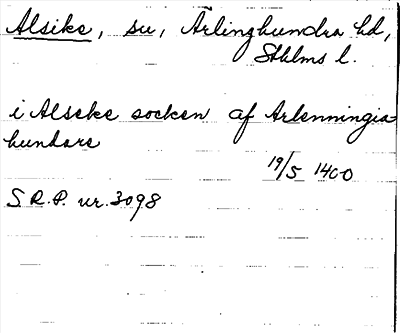 Alsike, su, Ärlinghundra hd,
Sthlms l.
i Alseke socken af Ærlenningia
hundare
19/5 1400
S R.P. nr. 3098